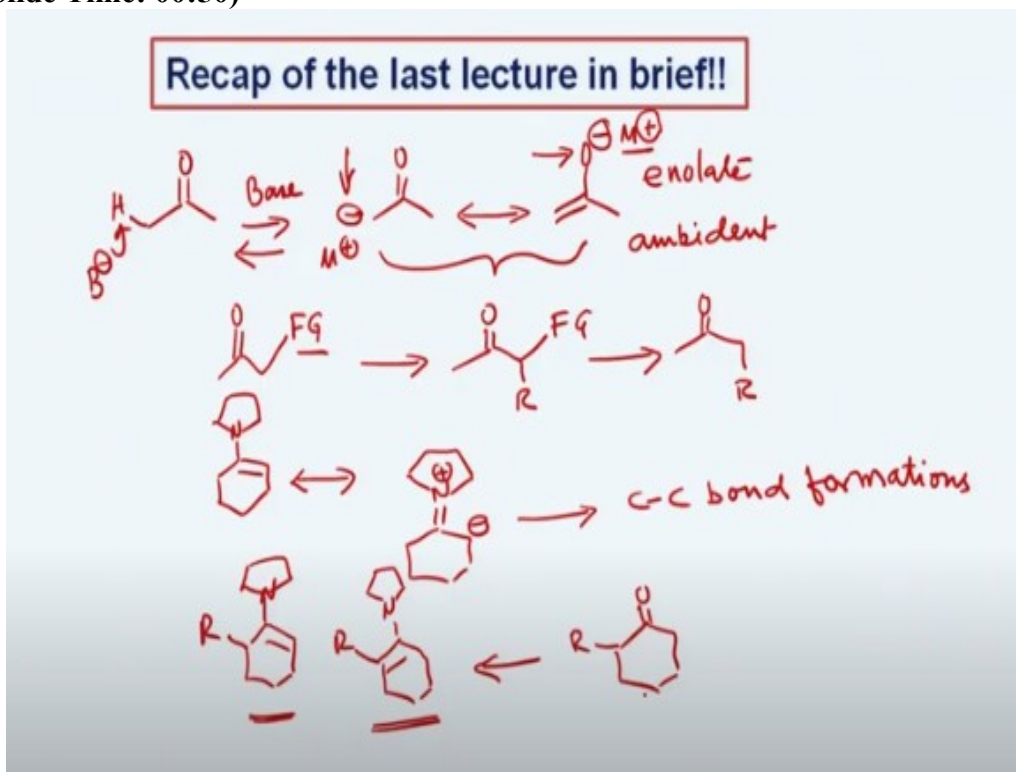 Recap of the last lecture in brief!!
O O O ⊖ M⊕
H Base ⊖ enolate
B⊖ M⊕ ambident
O FG O FG O
R R
N N⊕ ⊖ C-C bond formations
N N O
R R R